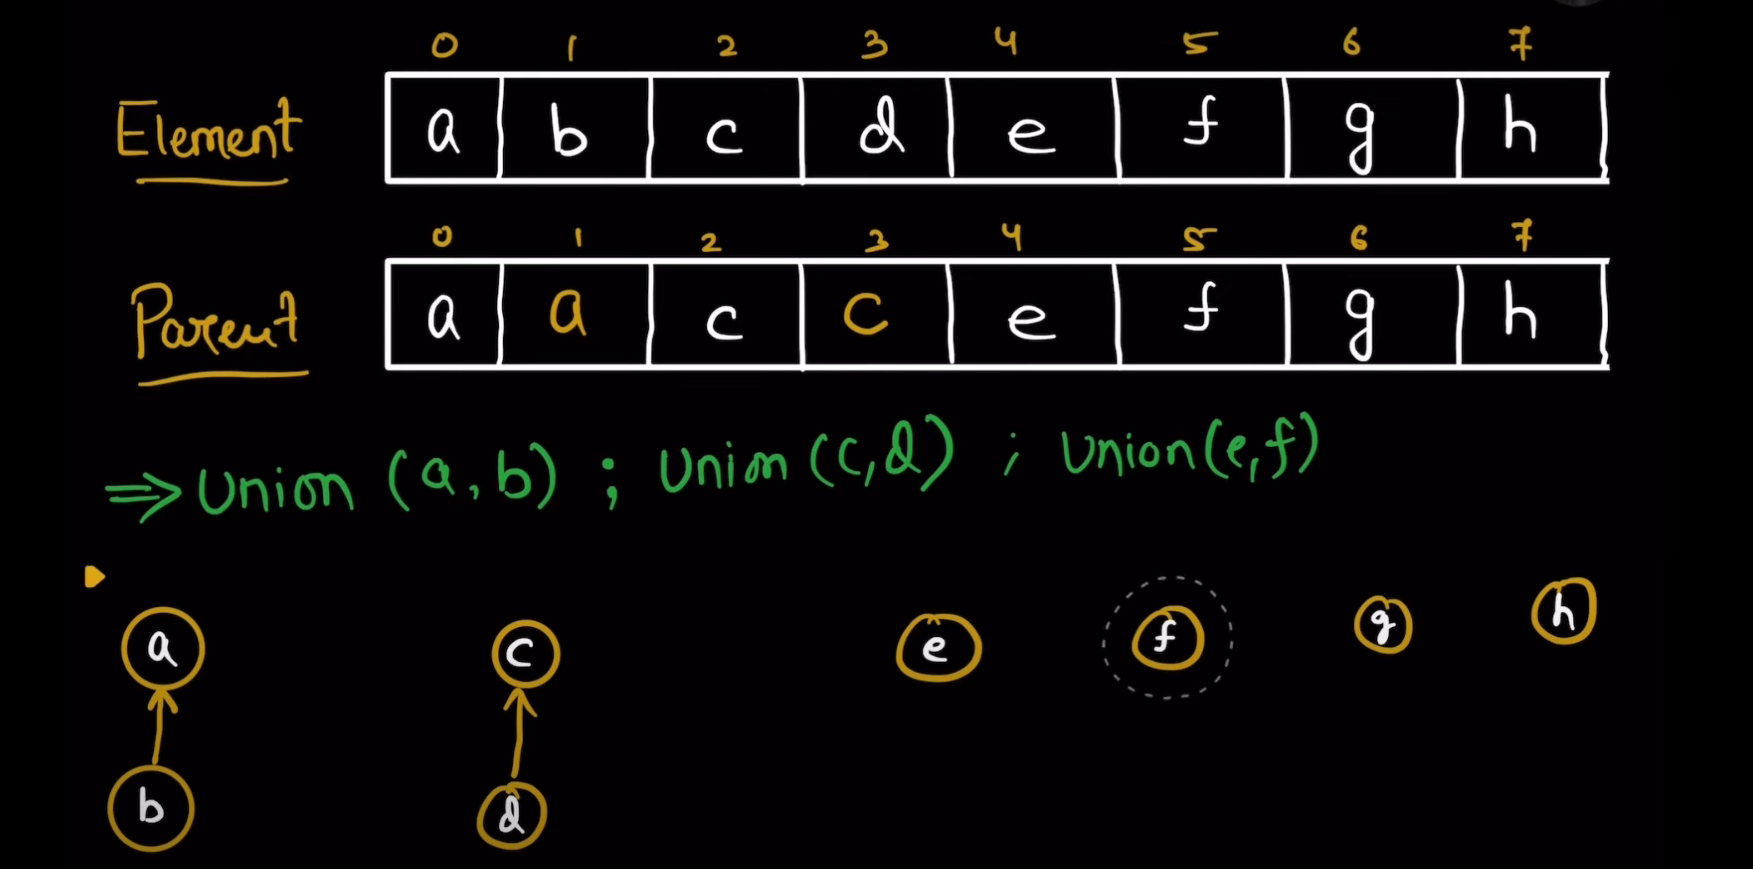 0 1 2 3 4 5 6 7
Element a b c d e f g h
0 1 2 3 4 5 6 7
Parent a a c c e f g h
⇒ Union (a, b) ; Union (c,d) ; Union(e,f)
a c e f g h
b d